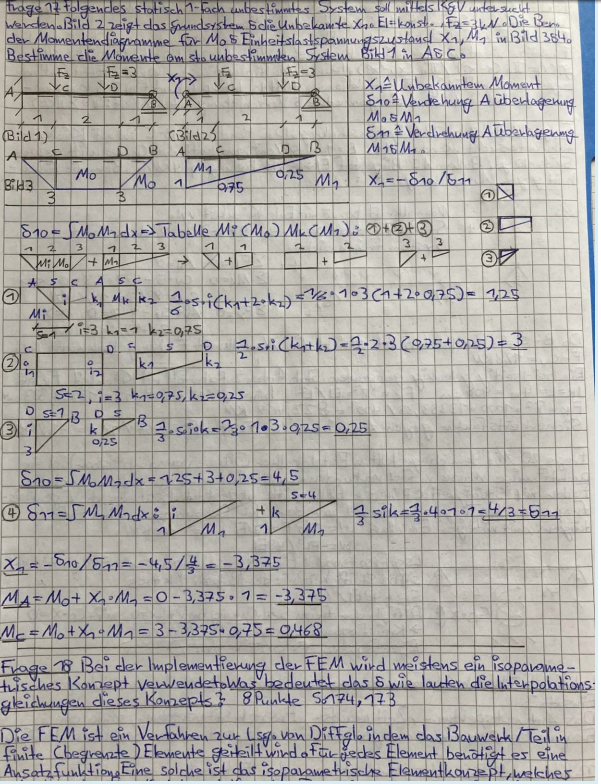 Frage 17 folgendes statisch 1-Fach unbestimmtes System soll mittels KGV untersucht
werden. Bild 2 zeigt das Grundsystem & die Unbekannte X₁. EI=konst. F₂=3kN. Die
der Momentendiagramme für M₀ & Einheitslastspannungszustand X₁, M₁ in Bild 3&4.
Bestimme die Momente am sta. unbestimmten System Bild 1 in A & C.
F₂ F₂=3 X₁ F₂ F₂=3
A C D B A C D B
1 2 1 1 2 1
(Bild 1) (Bild 2)
X₁ ≙ Unbekanntem Moment
δ10 ≙ Verdehung A Überlagerung
M₀ & M₁
δ11 ≙ Verdrehung A Überlagerung
M₁ & M₁.
A C D B A C D B
Bild 3 M₀ M₀ 1 M₁ 0,75 0,25 M₁
3 3
X₁ = -δ10/δ11
①
δ10 = ∫M₀M₁dx => Tabelle Mi(M₀) Mk(M₁): ①+②+③
②
1 2 3 1 2 3 1 1 2 2 3 3
Mi M₀ + M₁ → + + +
③
① A S C A S C
Mi i k₁ Mk k₂ 1/6·s·i(k₁+2·k₂) = 1/6·1·3(1+2·0,75) = 1,25
s=1 i=3 k₁=1 k₂=0,75
② C D C S D
i₁ i₂ k₁ k₂ 1/2·s·i(k₁+k₂) = 1/2·2·3(0,75+0,25) = 3
S=2, i=3 k₁=0,75, k₂=0,25
③ D s=1 B D S B
i 3 k 0,25 1/3·s·i·k = 1/3·1·3·0,25 = 0,25
δ10 = ∫M₀M₁dx = 1,25+3+0,25 = 4,5
④ δ11 = ∫M₁M₁dx: i 1 M₁ + k 1 M₁ s=4 1/3 sik = 1/3·4·1·1 = 4/3 = δ11
X₁ = -δ10/δ11 = -4,5/4/3 = -3,375
MA = M₀ + X₁·M₁ = 0 - 3,375·1 = -3,375
Mc = M₀ + X₁·M₁ = 3 - 3,375·0,75 = 0,468
Frage 18 Bei der Implementierung der FEM wird meistens ein isoparame-
trisches Konzept verwendet. Was bedeutet das & wie lauten die Interpolations-
gleichungen dieses Konzepts? 8 Punkte S. 174, 173
Die FEM ist ein Verfahren zur Lsg. von Diffgl. indem das Bauwerk/Teil in
finite (begrenzte) Elemente geteilt wird. Für jedes Element benötigt es eine
Ansatzfunktion. Eine solche ist das isoparametrische Elementkonzept, welches